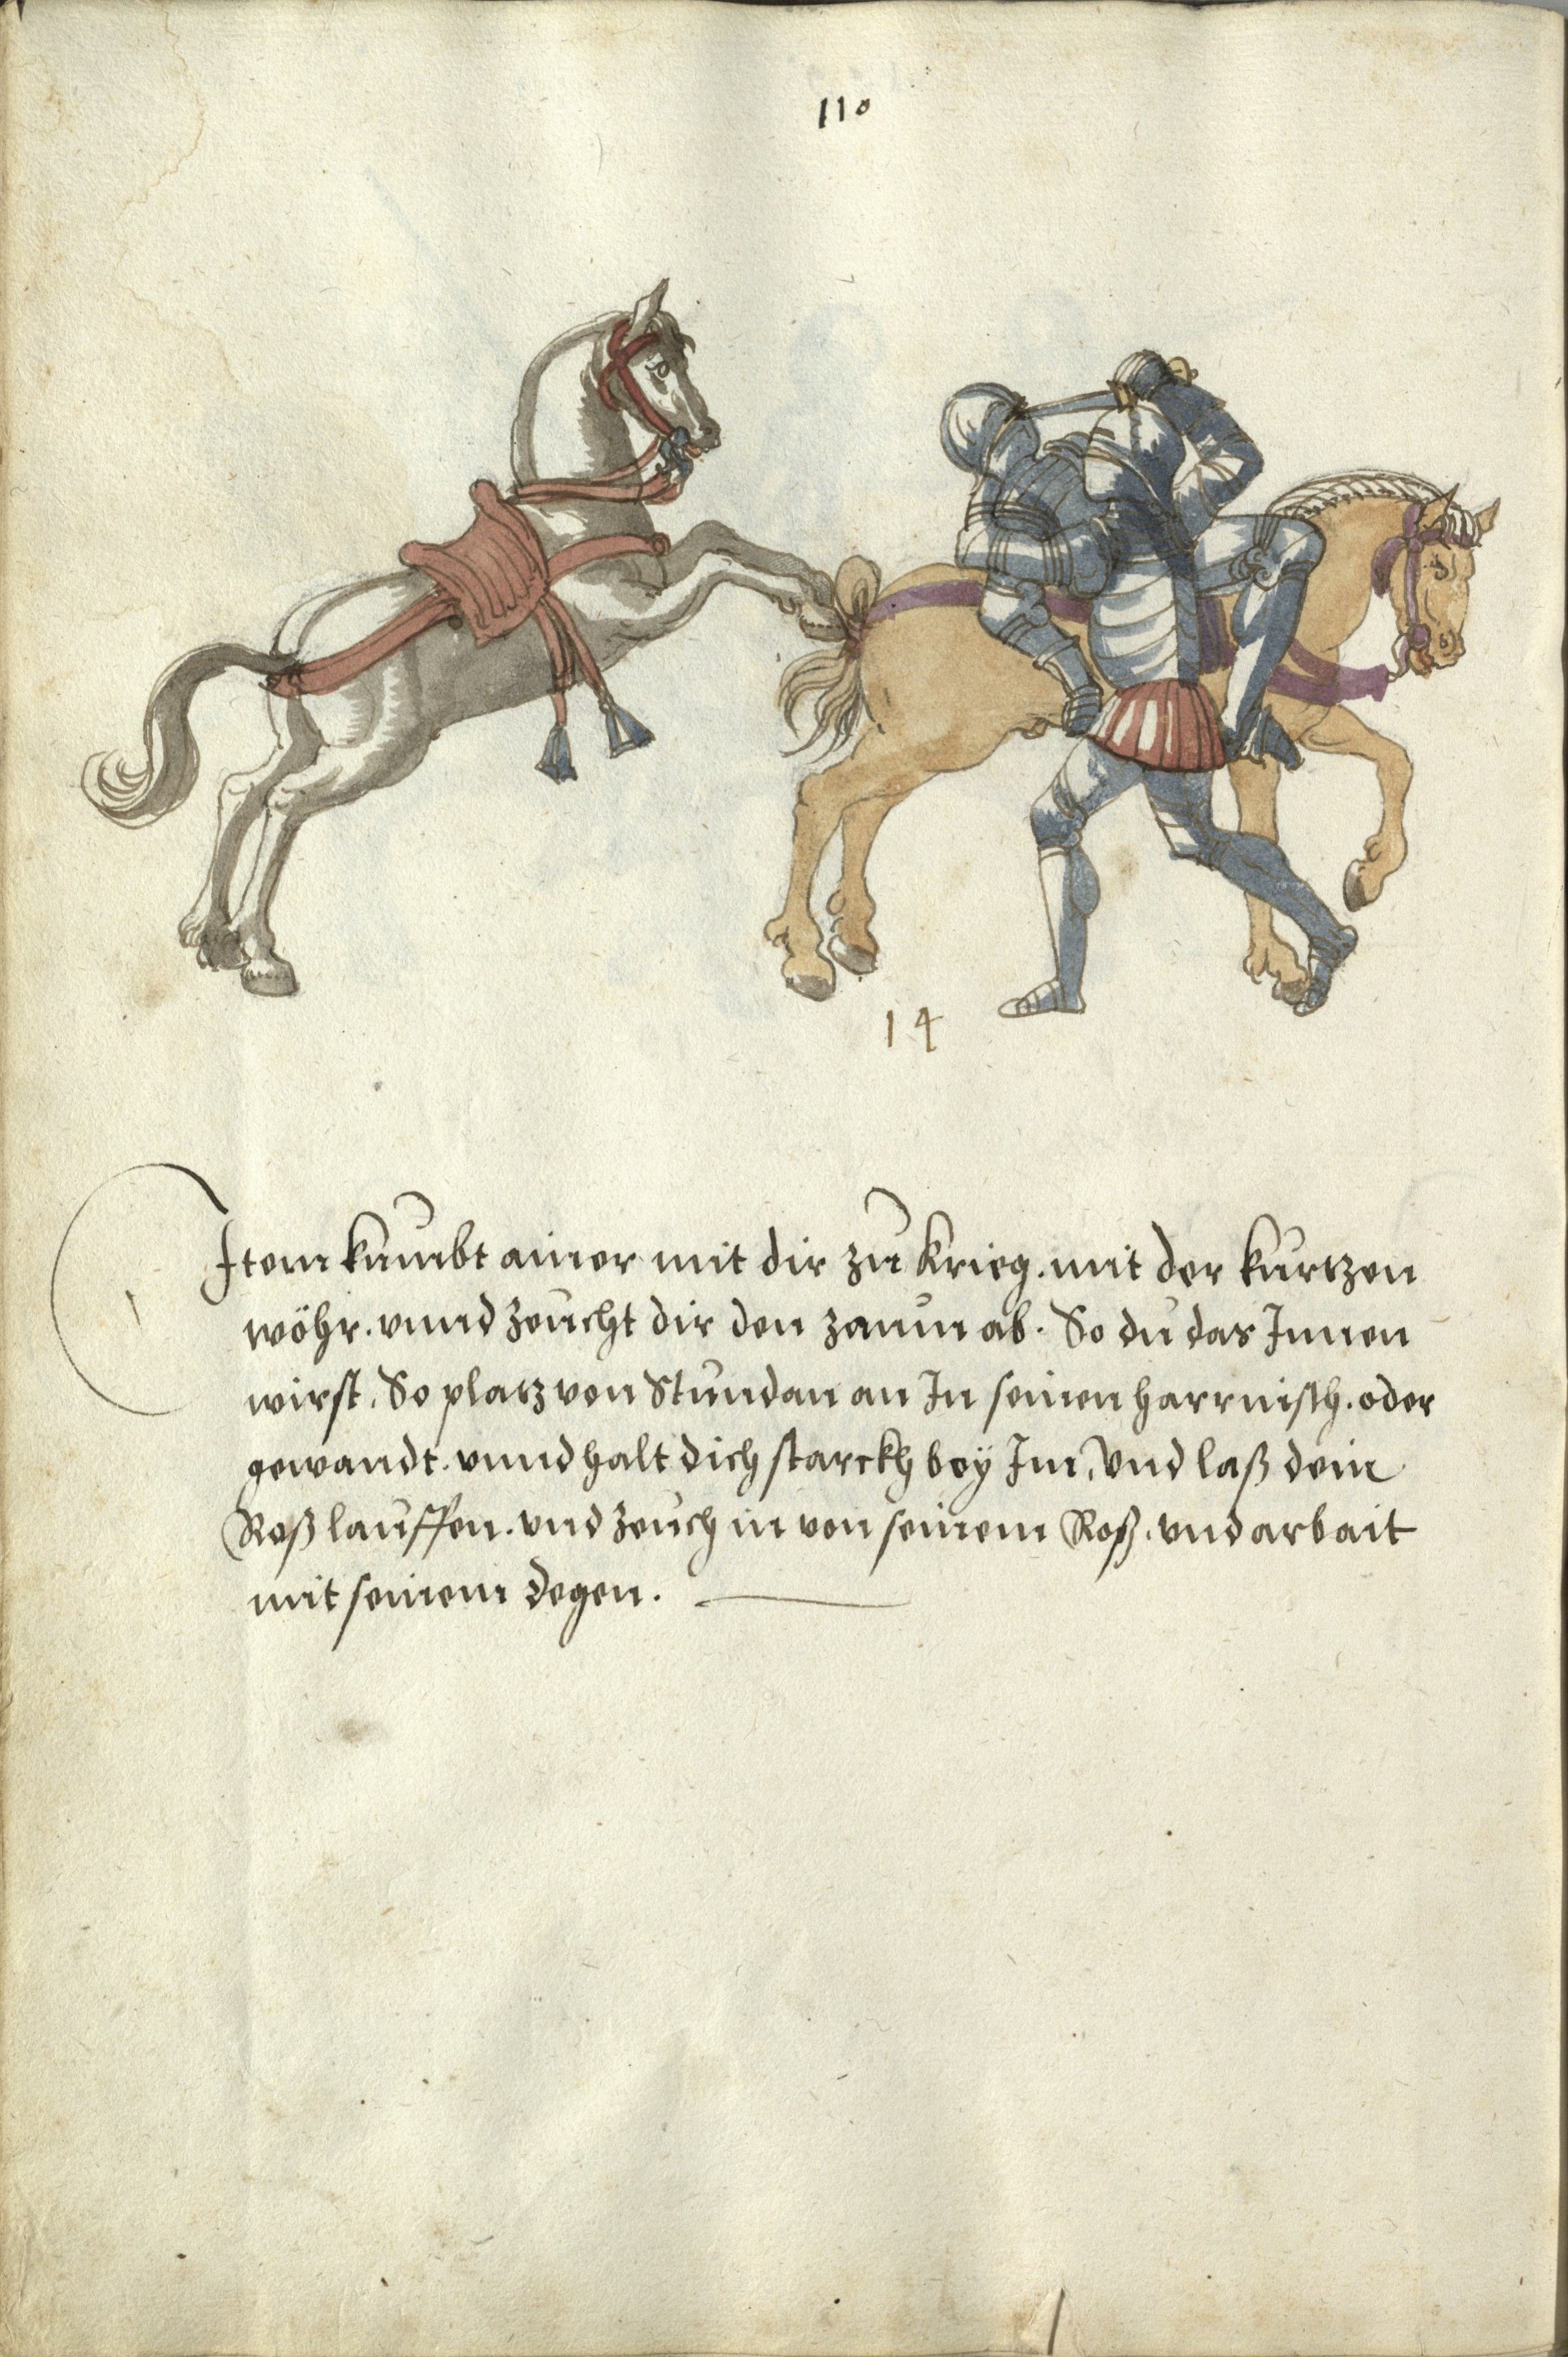 110
14
Item kumbt ainer mit dir zu Krieg. mit der kurtzen
wöhr. vnnd zeucht dir den zaum ab. So du das Innen
wirst. So platz von Stundan an In seinen harrnisch. oder
gewandt. vnnd halt dich starckh bey Im, Vnd laß dein
Roß lauffen. vnd zeuch in von seinem Roß. vnd arbait
mit seinem degen.